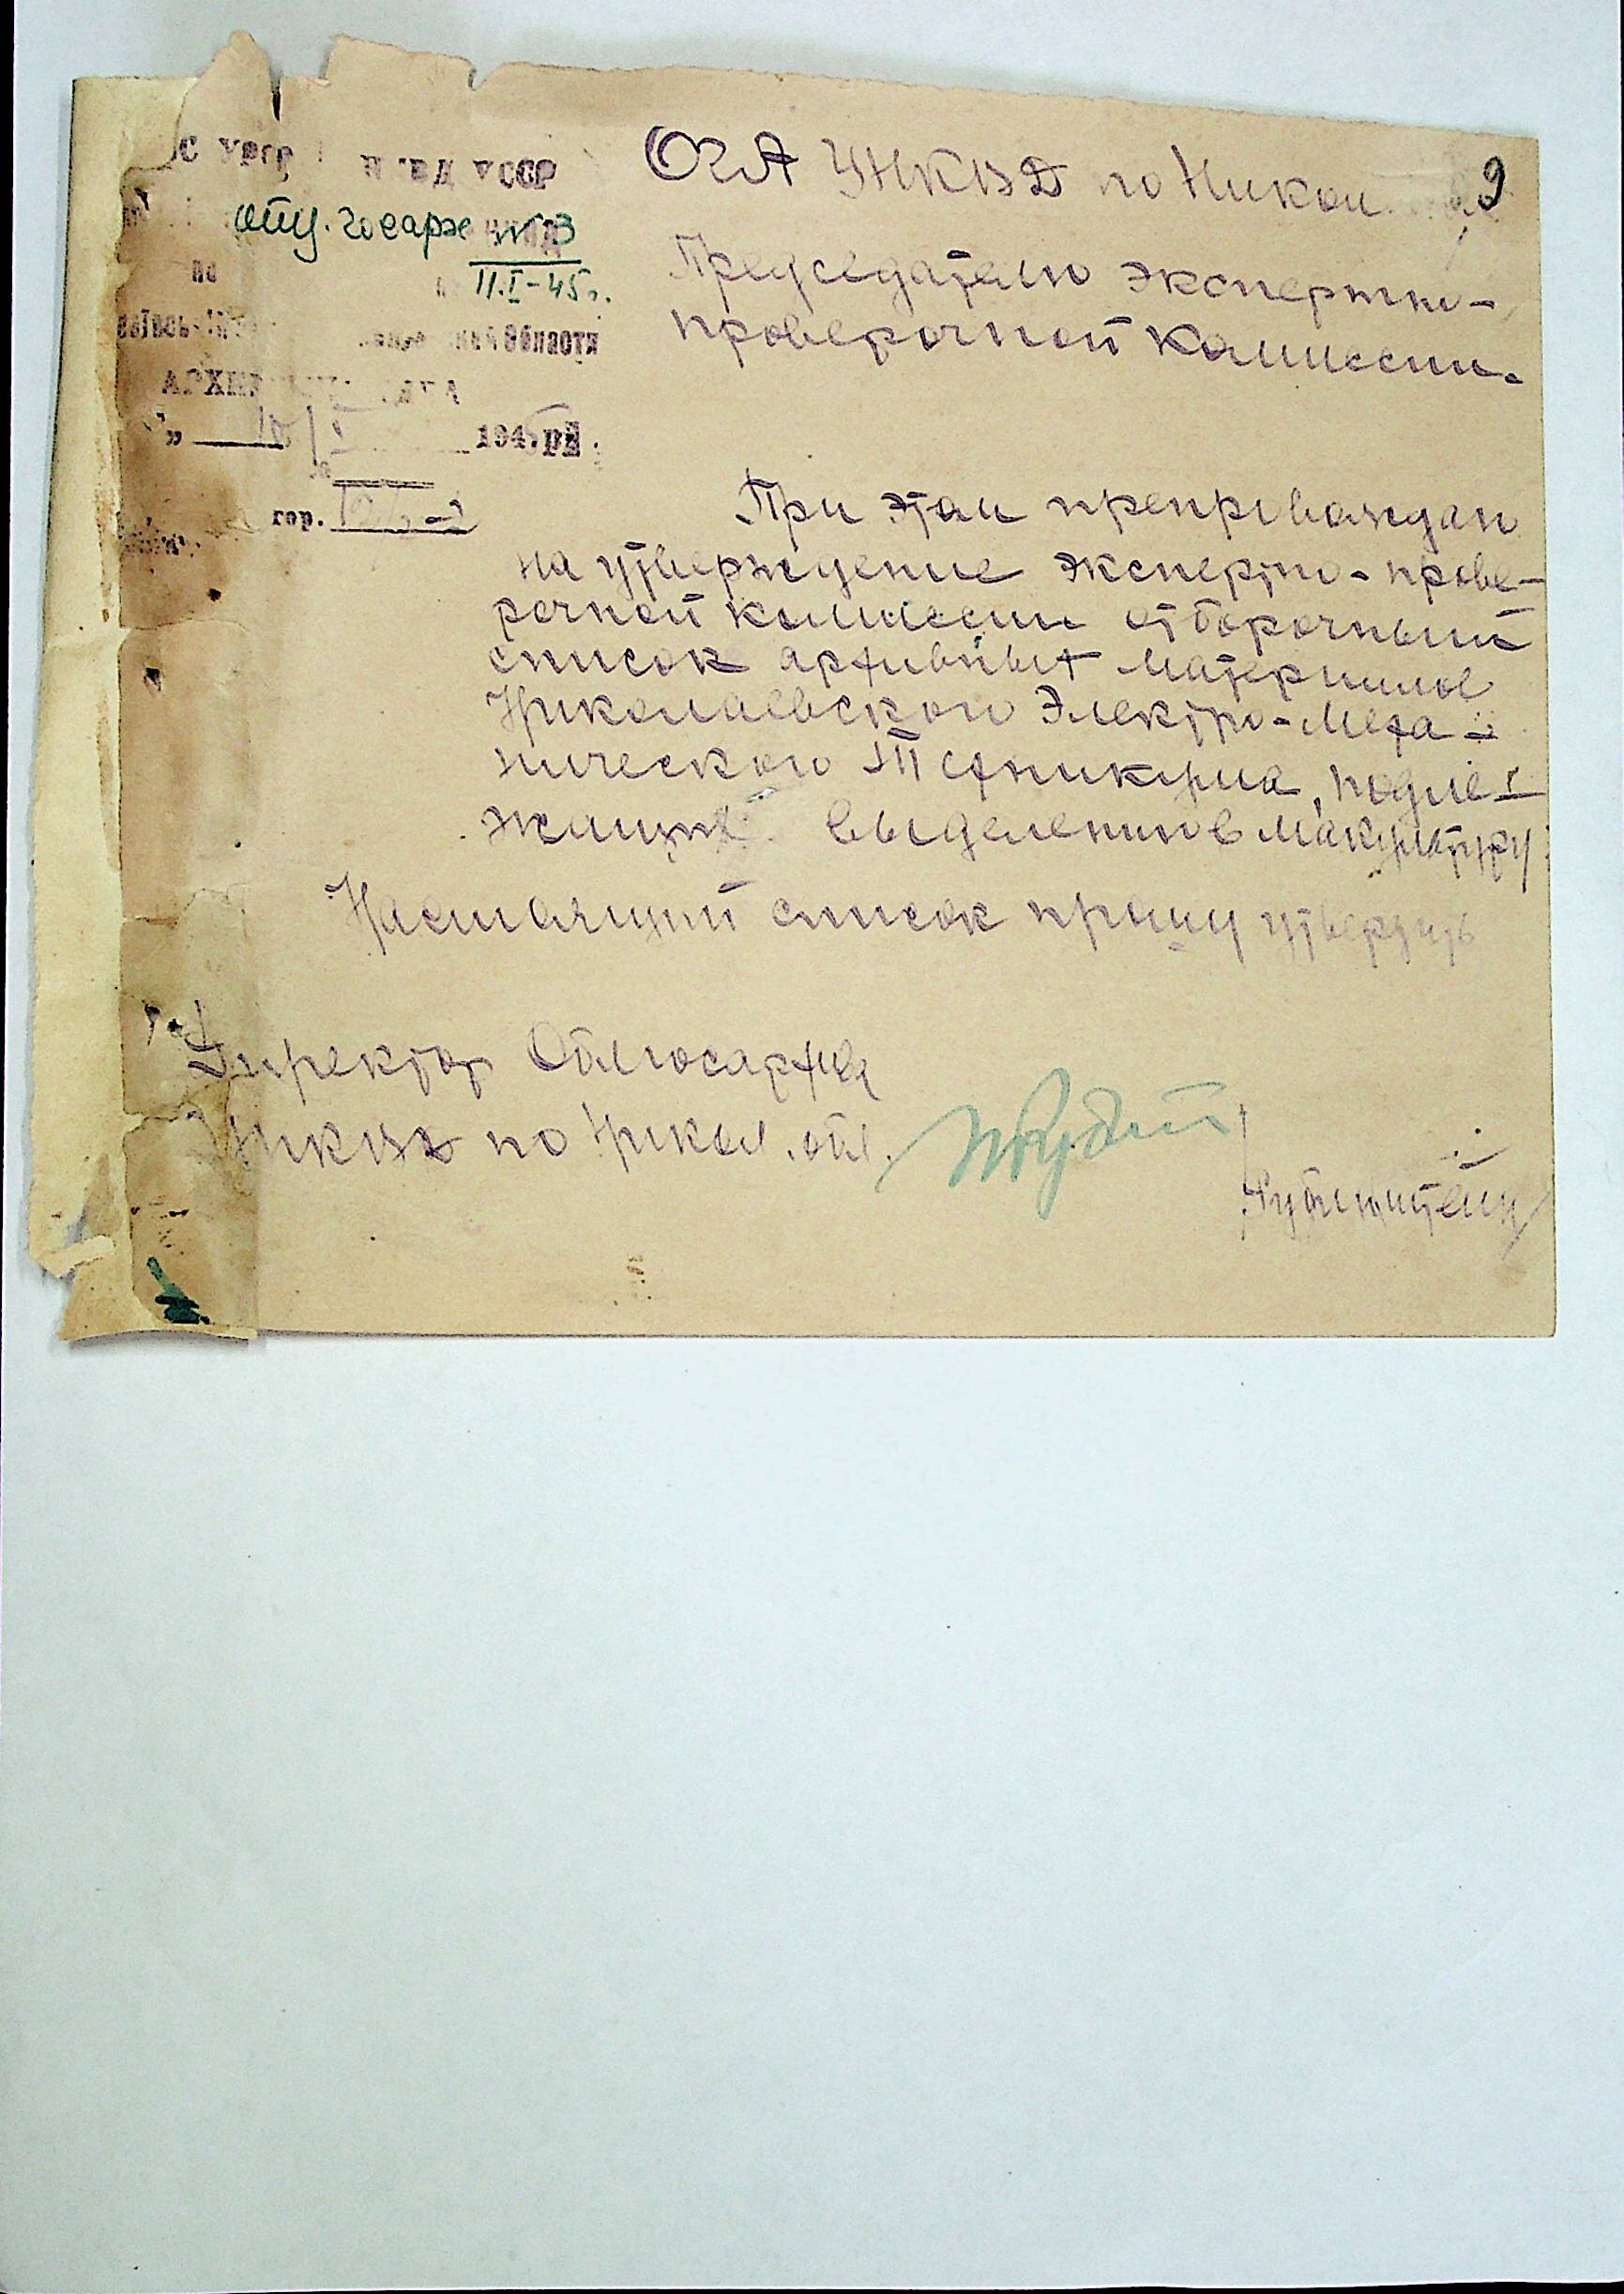 УССР
отд. госарх №3
по
11.I-45г.
области
194 р.
гор.
9
ОГА УНКВД по Никол.
Председателю экспертно-
проверочной комиссии.
При этом препровождаю
на утверждение экспертно-прове-
рочной комиссии отборочный
список архивных материалов
Николаевского Электро-Меха-
нического Техникума, подле-
жащих выделению в макулатуру
Настоящий список прошу утвердить
Директор Облгосархива
УНКВД по Никол. обл.
/Рубинштейн/